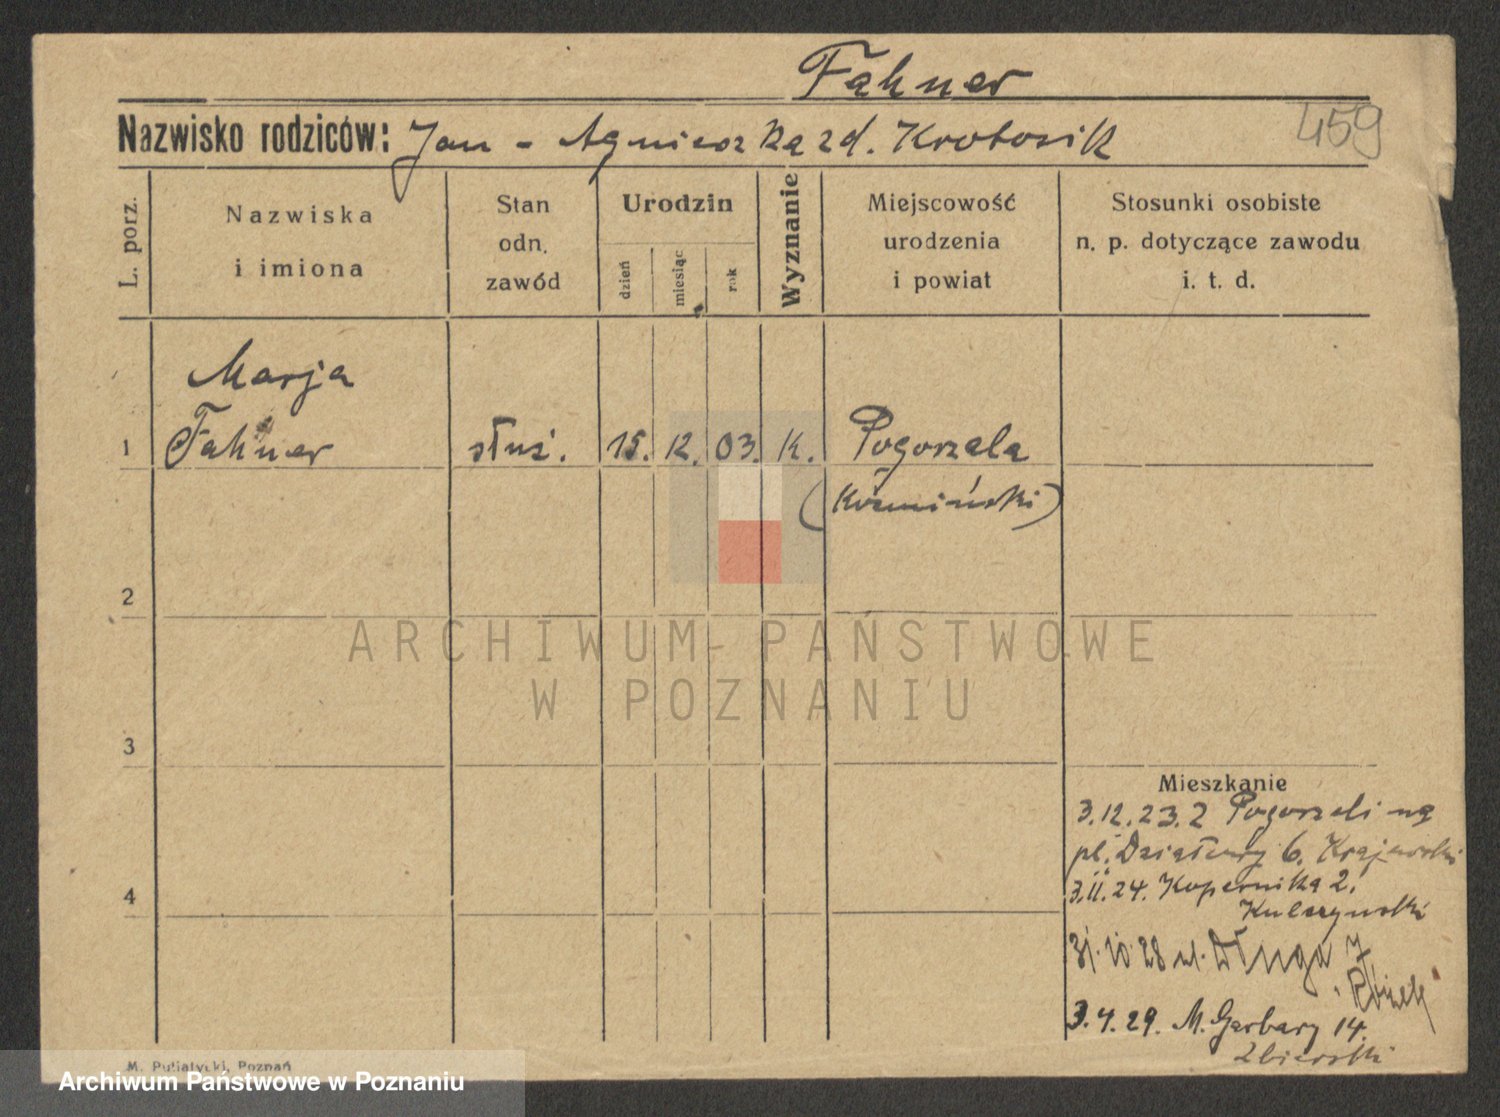 Fahner
459
Nazwisko rodziców: Jan - Agnieszka zd. Krotosik
L. porz.
Nazwiska
i imiona
Stan
odn.
zawód
Urodzin
dzień
miesiąc
rok
Wyznanie
Miejscowość
urodzenia
i powiat
Stosunki osobiste
n. p. dotyczące zawodu
i. t. d.
Marja
1 Fahner służ. 15. 12. 03. K. Pogorzela
(Koźmiński)
2
ARCHIWUM PAŃSTWOWE
W POZNANIU
3
Mieszkanie
3.12.23. z Pogorzeli na
pl. Działowy 6. Krajewski
4
3.II.24. Kopernika 2.
Kulczyński
31.10.28 ul. Długa 7
Rózek
3.4.29. M. Garbary 14.
Zbierski
M. Putiatycki, Poznań
Archiwum Państwowe w Poznaniu